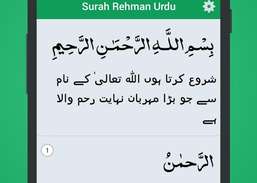 Surah Rehman Urdu
بِسْمِ اللَّهِ الرَّحْمَٰنِ الرَّحِيمِ
شروع کرتا ہوں اللہ تعالیٰ کے نام
سے جو بڑا مہربان نہایت رحم والا
ہے
1
الرَّحْمَٰنُ